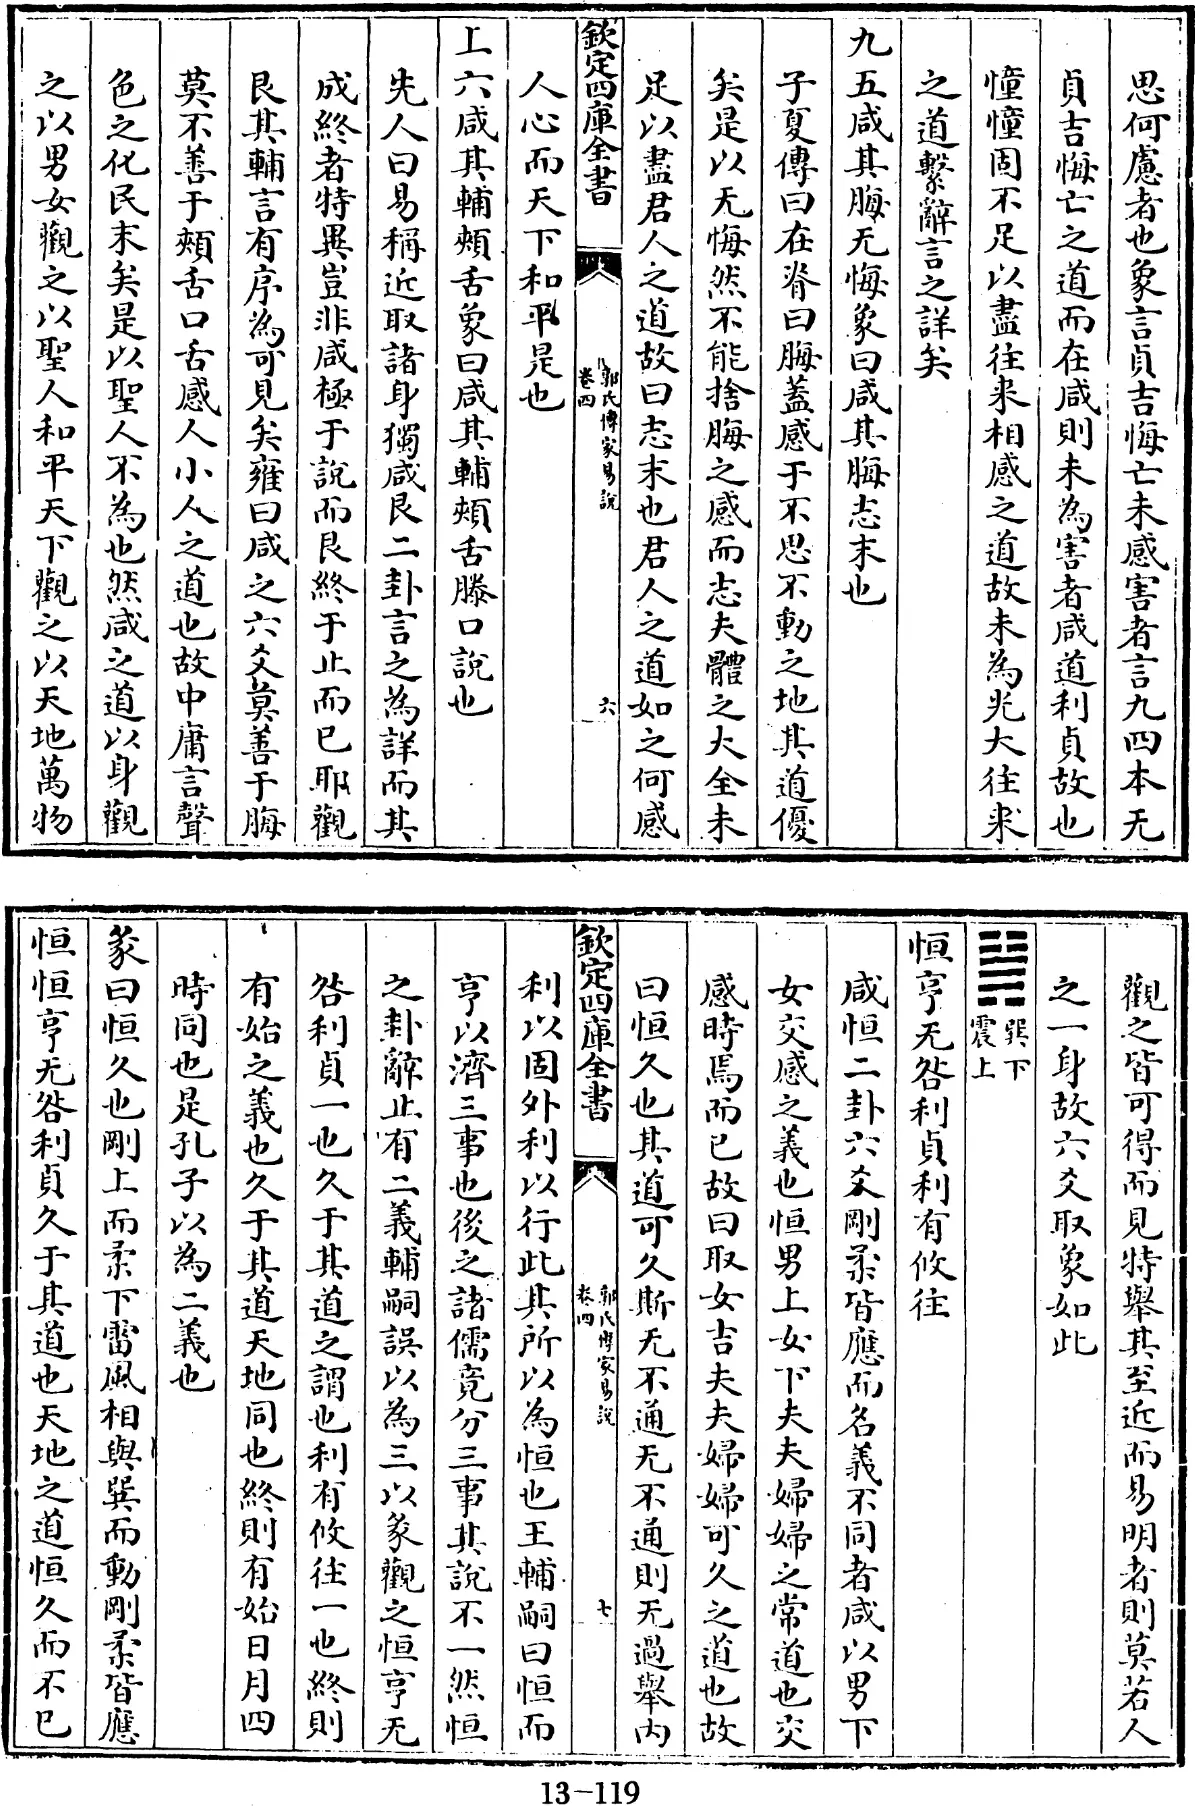 思何慮者也象言貞吉悔亡未感害者言九四本无
貞吉悔亡之道而在咸則未為害者咸道利貞故也
憧憧固不足以盡往來相感之道故未為光大往來
之道繫辭言之詳矣
九五咸其脢无悔象曰咸其脢志末也
子夏傳曰在脊曰脢蓋感于不思不動之地其道優
矣是以无悔然不能捨脢之感而志夫體之大全未
足以盡君人之道故曰志末也君人之道如之何感
欽定四庫全書
郭氏傳家易說
卷四
六
人心而天下和平是也
上六咸其輔頰舌象曰咸其輔頰舌滕口說也
先人曰易稱近取諸身獨咸艮二卦言之為詳而其
成終者特異豈非咸極于說而艮終于止而已耶觀
艮其輔言有序為可見矣雍曰咸之六爻莫善于脢
莫不善于頰舌口舌感人小人之道也故中庸言聲
色之化民末矣是以聖人不為也然咸之道以身觀
之以男女觀之以聖人和平天下觀之以天地萬物
觀之皆可得而見特舉其至近而易明者則莫若人
之一身故六爻取象如此
巽下
震上
恒亨无咎利貞利有攸往
咸恒二卦六爻剛柔皆應而名義不同者咸以男下
女交感之義也恒男上女下夫夫婦婦之常道也交
感時焉而已故曰取女吉夫夫婦婦可久之道也故
曰恒久也其道可久斯无不通无不通則无過舉內
欽定四庫全書
郭氏傳家易說
卷四
七
利以固外利以行此其所以為恒也王輔嗣曰恒而
亨以濟三事也後之諸儒竟分三事其說不一然恒
之卦辭止有二義輔嗣誤以為三以彖觀之恒亨无
咎利貞一也久于其道之謂也利有攸往一也終則
有始之義也久于其道天地同也終則有始日月四
時同也是孔子以為二義也
彖曰恒久也剛上而柔下雷風相與巽而動剛柔皆應
恒恒亨无咎利貞久于其道也天地之道恒久而不已
13-119